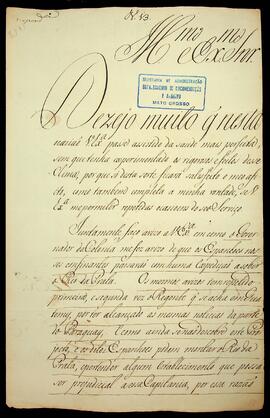 N. 13.
Illmo. e Exmo. Snr.
SECRETARIA DE ADMINISTRAÇÃO
DEPARTAMENTO DE DOCUMENTAÇÃO
E ARQUIVO
MATO GROSSO
Dezejo muito q̃ nesta
V.Ex.ª passe assistido da saude mais perfeita,
sem que tenha experimentado os rigores desse
Clima; por q̃ desta sorte ficará satisfeito o meu affe-
cto, como tambem completa a minha vontade, se V.
Ex.ª me permitir repetidas occasioens do seo Serviço.
Juntamente faço avizo a V.Ex.ª em como o Gover-
nador da Colonia me fez avizo de que os Espanhoes nas
passarão com huma Expedição a sobir
o Rio da Prata. Os mesmos avizos tem repetido
primeira, e segunda vez o Regente q̃ se acha em
temy, por ter alcançado as mesmas noticias da parte
do Paraguay. E como ainda se não descobre este
e os ditos Espanhoes podem
Prata, algum Estabelecimento que possa
ser prejudicial a essa Capitania, por essa razaõ